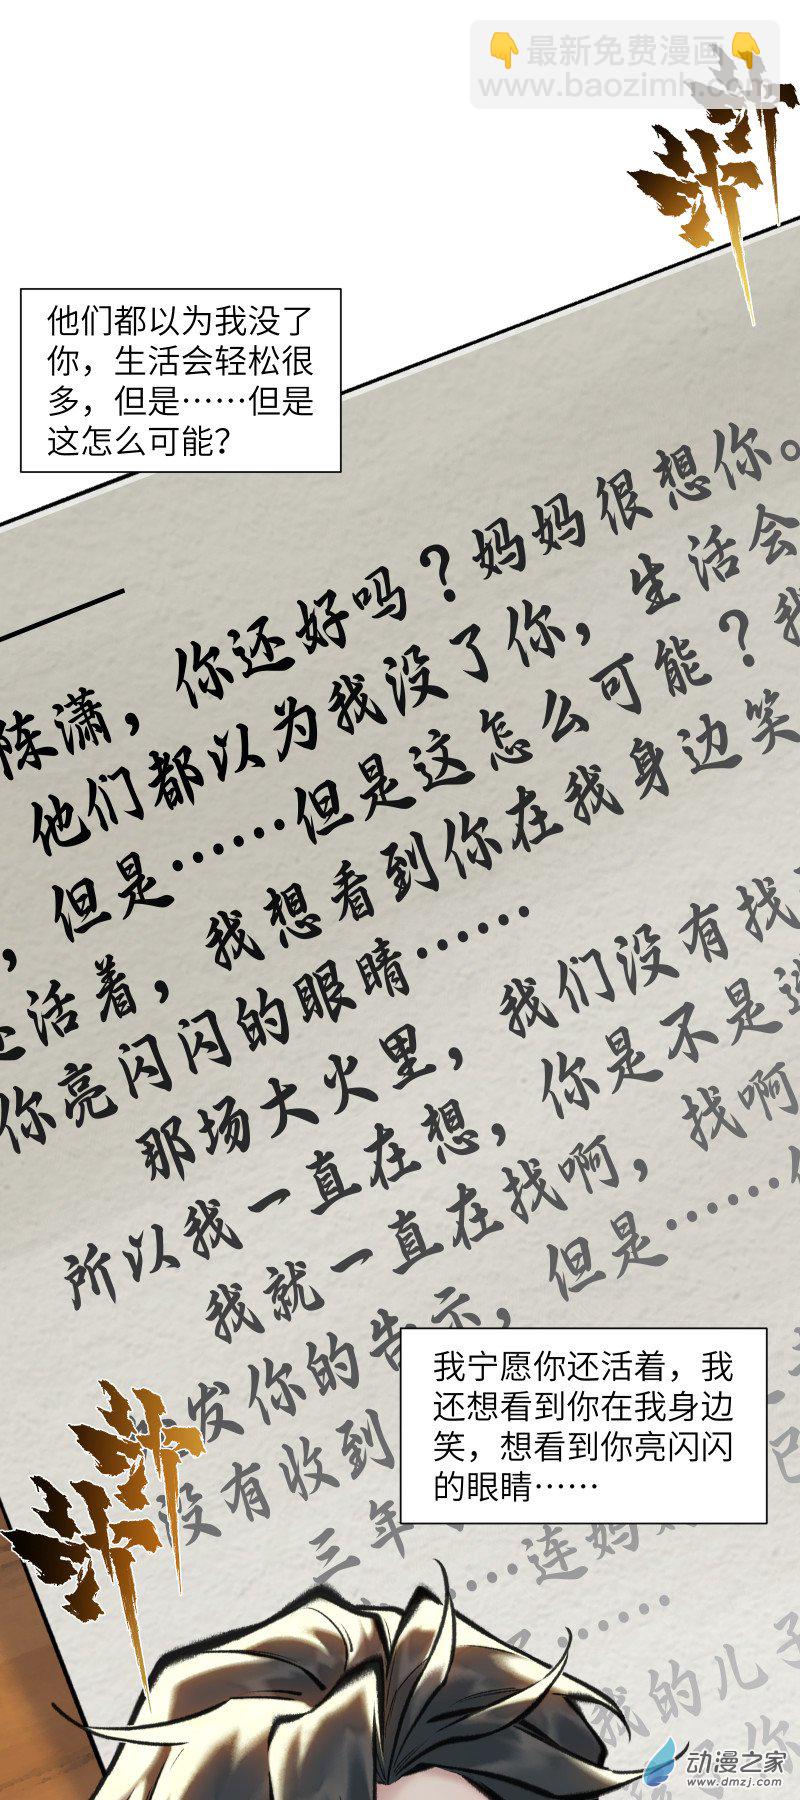 👇最新免费漫画👇
www.baozimh.com
他们都以为我没了
你，生活会轻松很
多，但是……但是
这怎么可能？
陈潇，你还好吗？妈妈很想你。
他们都以为我没了你，生活会
，但是……但是这怎么可能？我
还活着，我想看到你在我身边笑
你亮闪闪的眼睛……
那场大火里，我们没有找
所以我一直在想，你是不是
我就一直在找啊，找啊
发你的告示，但是……
没有收到
三年
……连妈
……
我的儿子
你
我宁愿你还活着，我
还想看到你在我身边
笑，想看到你亮闪闪
的眼睛……
动漫之家
www.dmzj.com